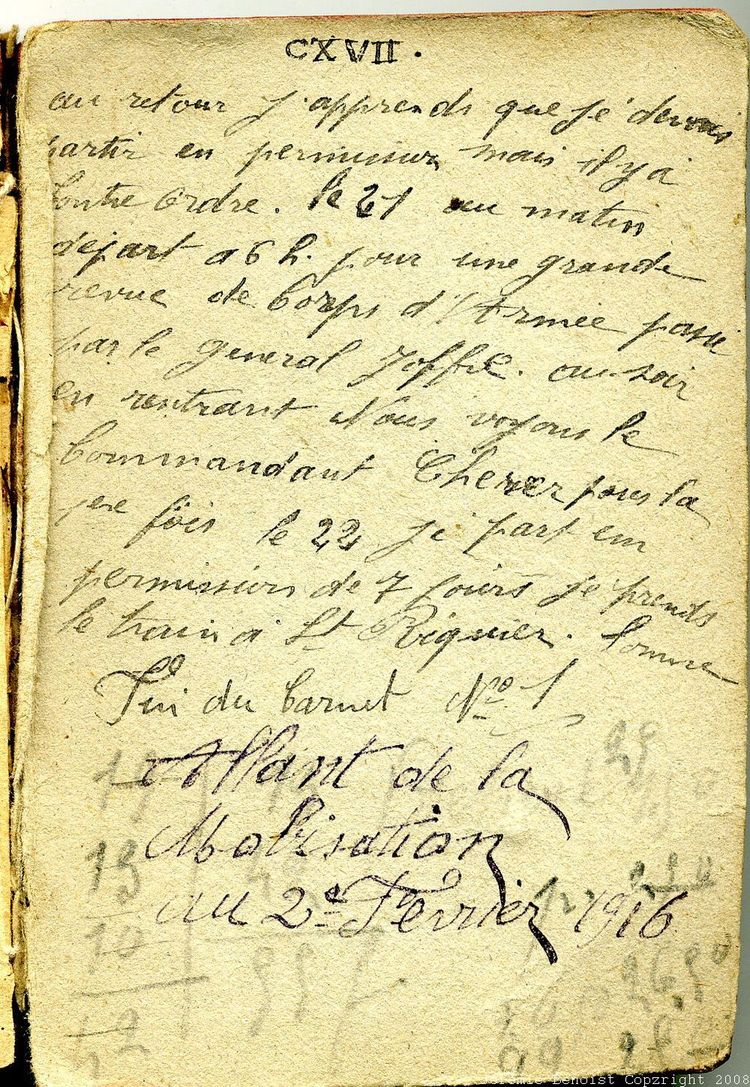 CXVII.
au retour j'apprends que je devais
partir en permission mais il y a
Contre Ordre. le 21 au matin
départ a 6 h. pour une grande
revue de Corps d'Armée passé
par le general Joffre. au soir
en rentrant Nous voyons le
Commandant pour la
1ere fois le 22 je part en
permission de 7 jours je prends
le train à St Riquier. Somme
Fin du Carnet No 1
Allant de la
Mobisation
au 2e Fevrier 1916
19
10
Benoist Copyright 2008